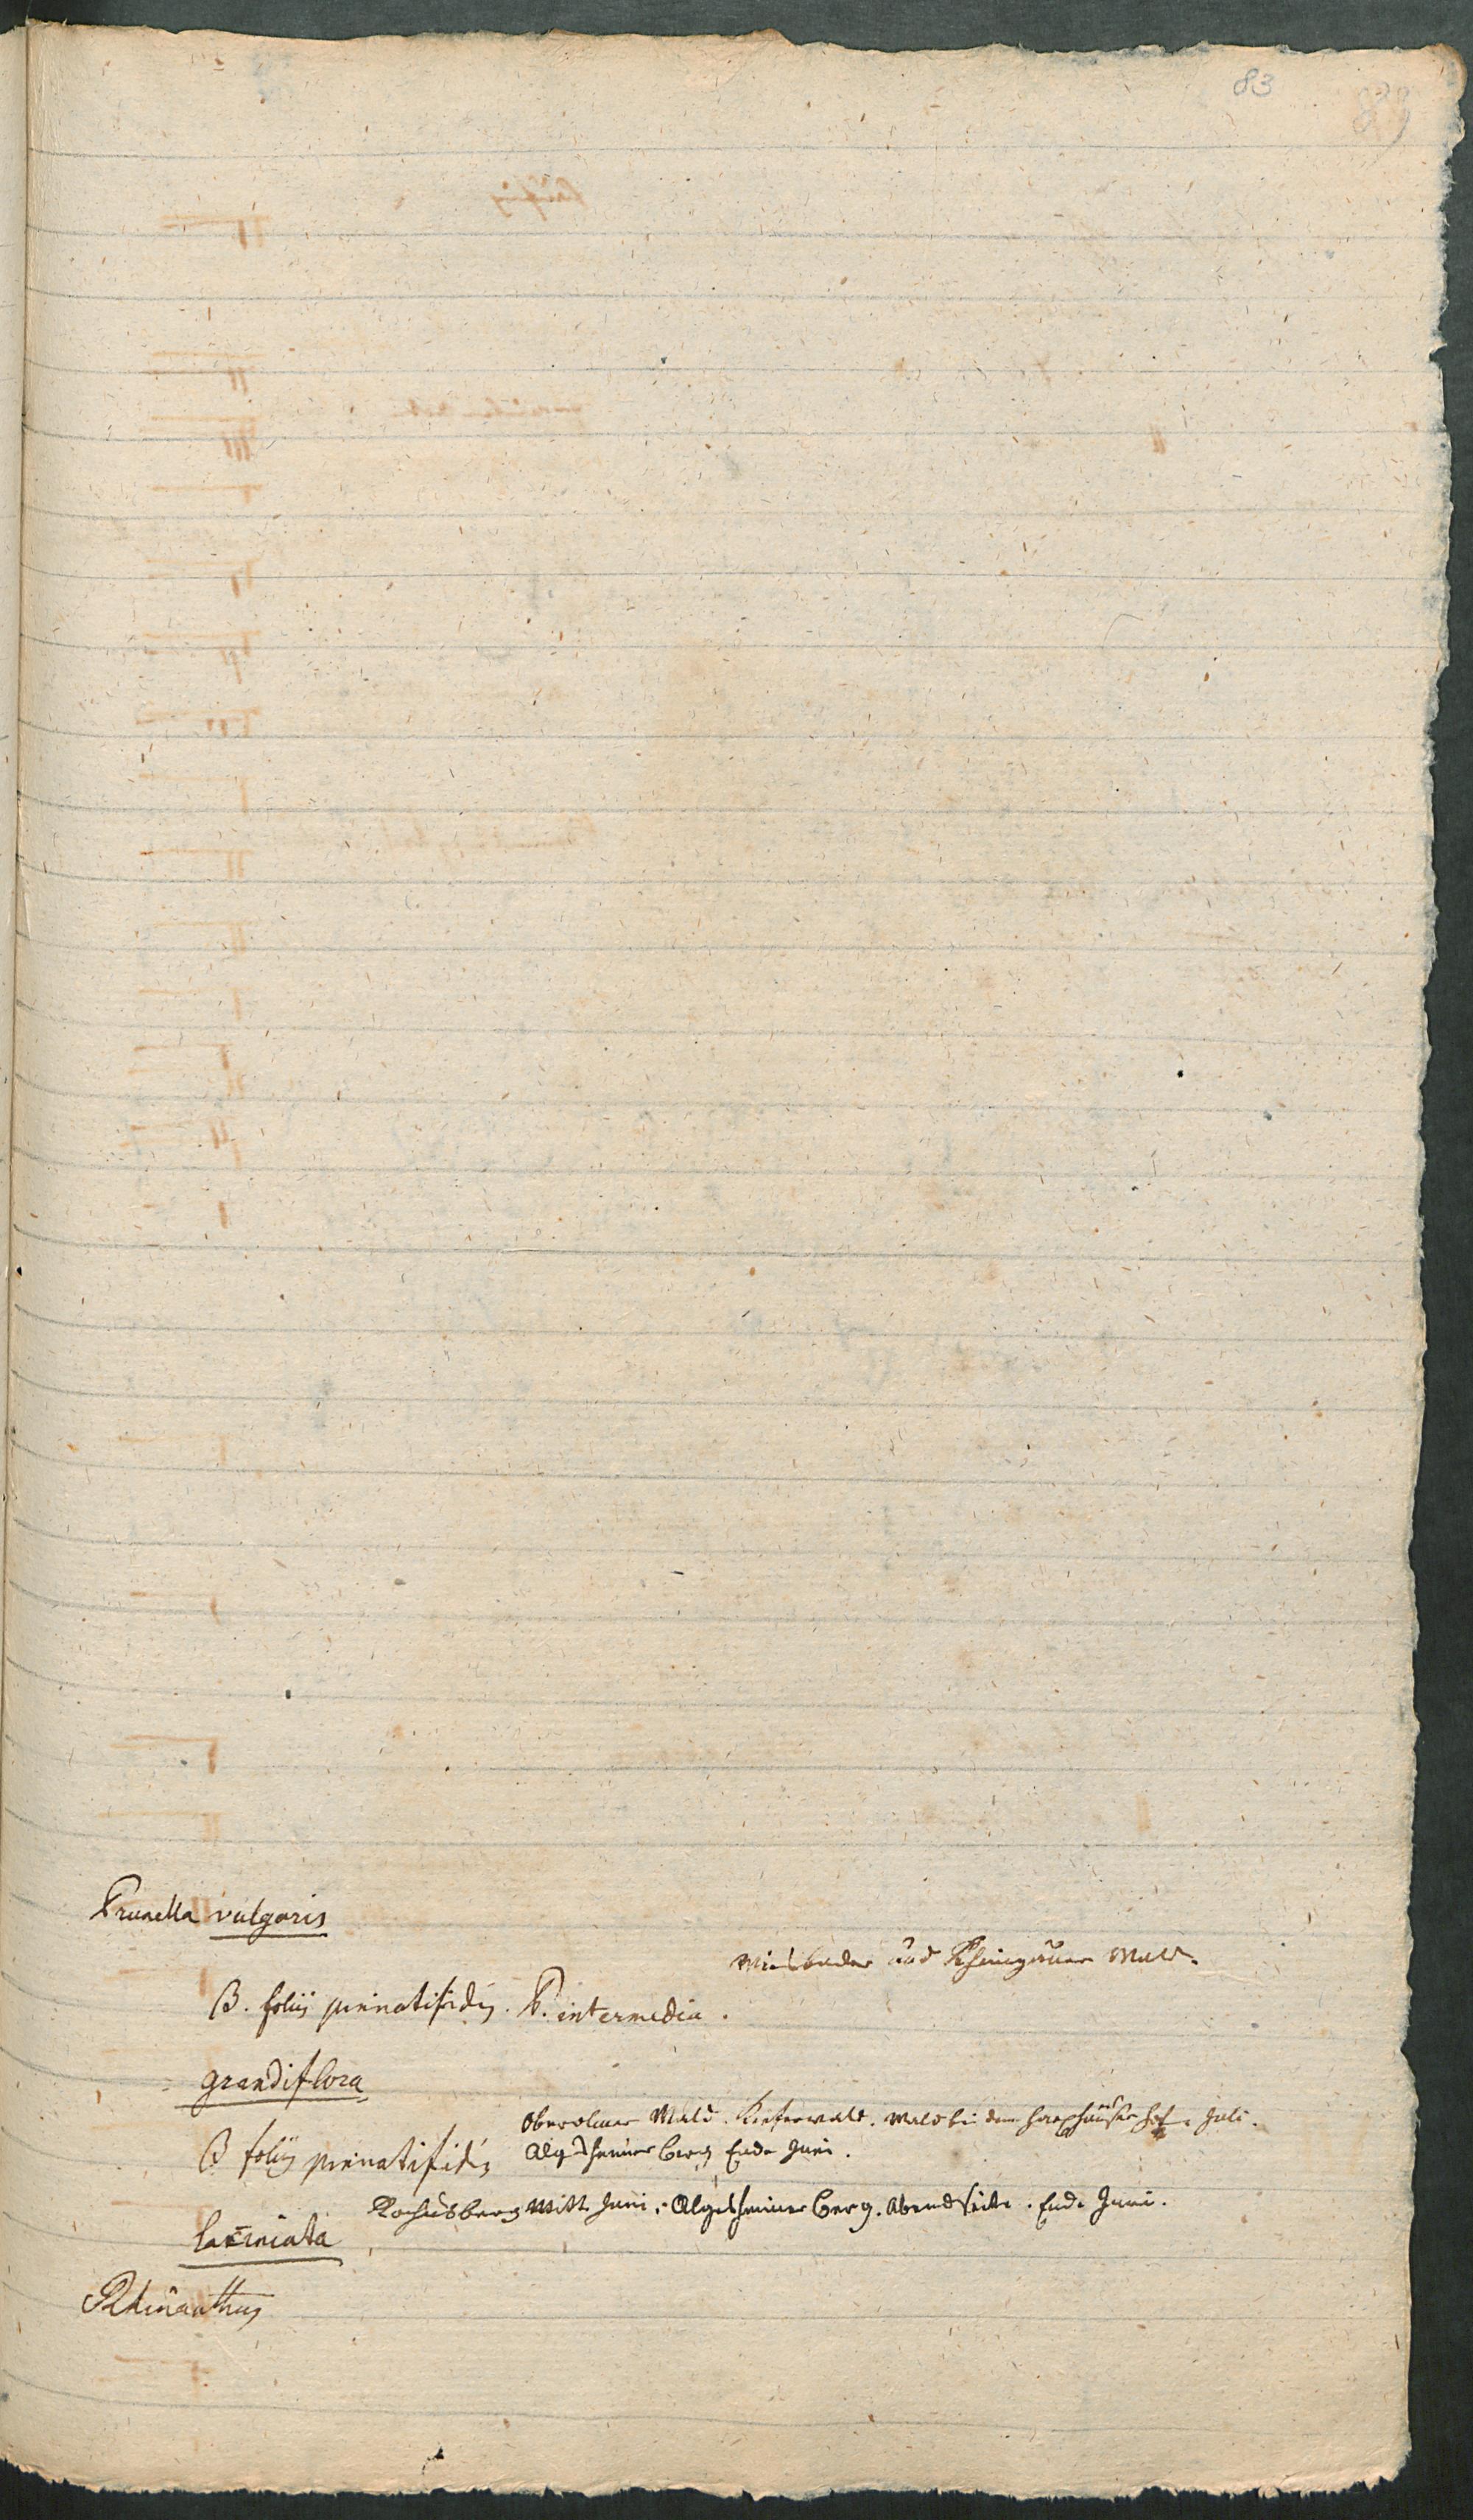 83
Prunella vulgaris
Wiesbader und Rheingauer Wald.
β. foliis pinnatifidis. P. intermedia.
grandiflora
Oberolmer Wald. Kieferwald. Wald bei dem Hof. Juli.
β foliis pinnatifidis Algesheimer berg Ende Juni.
Rochusberg Mitte Juni. Algesheimer berg. Abendseite. Ende Juni.
laciniata
Rhinanthus